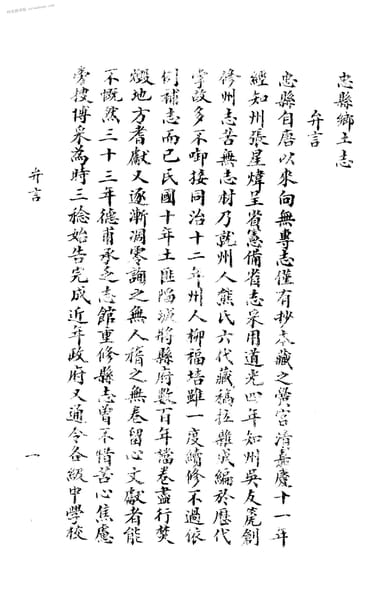 忠縣鄉土志
弁言
忠縣自唐以來向無專志僅有抄本藏之黌宮清嘉慶十一年
經知州張星煒呈省憲備省志采用道光四年知州吳友箎創
修州志苦無志材乃就州人熊氏六代藏稿拉雜成編於歷代
掌故多不啣接同治十二年州人柳福培雖一度續修不過依
例補志而已民國十年土匪陷城將縣府數百年檔卷盡行焚
燬地方耆獻又逐漸凋零詢之無人稽之無卷留心文獻者能
不慨然三十三年德甫承乏志館重修縣志曾不惜苦心焦慮
旁搜博采為時三稔始告完成近年政府又通令各級中學校
弁言
一